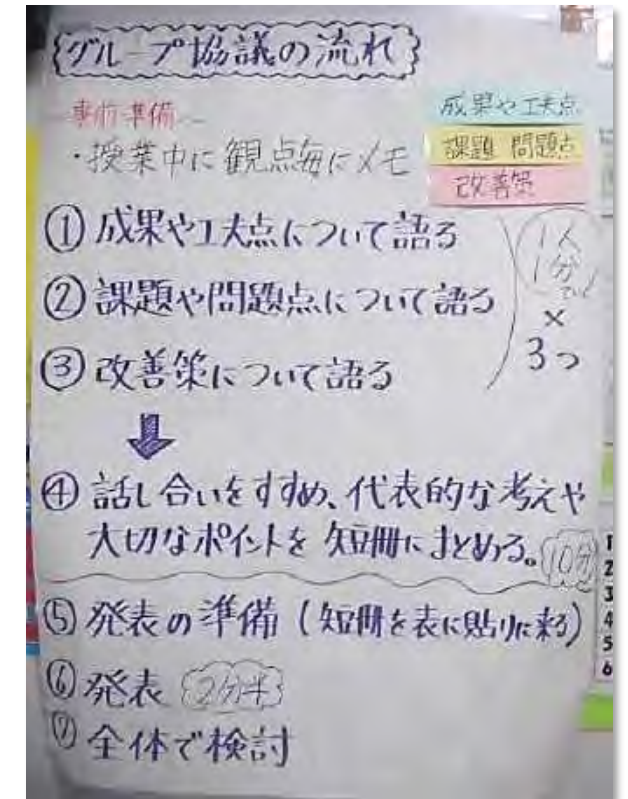 グループ協議の流れ
事前準備
・授業中に観点毎にメモ
成果や工夫点
課題 問題点
改善策
① 成果や工夫点について語る
② 課題や問題点について語る
③ 改善策について語る
1人
1分で
×
3つ
④ 話し合いをすすめ、代表的な考えや
大切なポイントを短冊にまとめる。10分
⑤ 発表の準備(短冊を表に貼りに来る)
⑥ 発表 2分半
⑦ 全体で検討
1
2
3
4
5
6